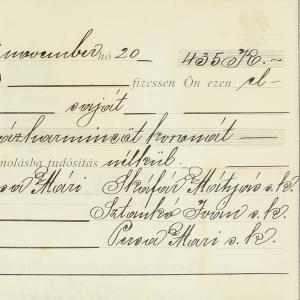 november hó 20 435 K.-
fizessen Ön ezen el-
saját
ázharmincöt koronát
molásba tudósítás nélkül.
Mári Skáfár Mátyás s.k.
Sztankó Iván s.k.
Persa Mari s.k.